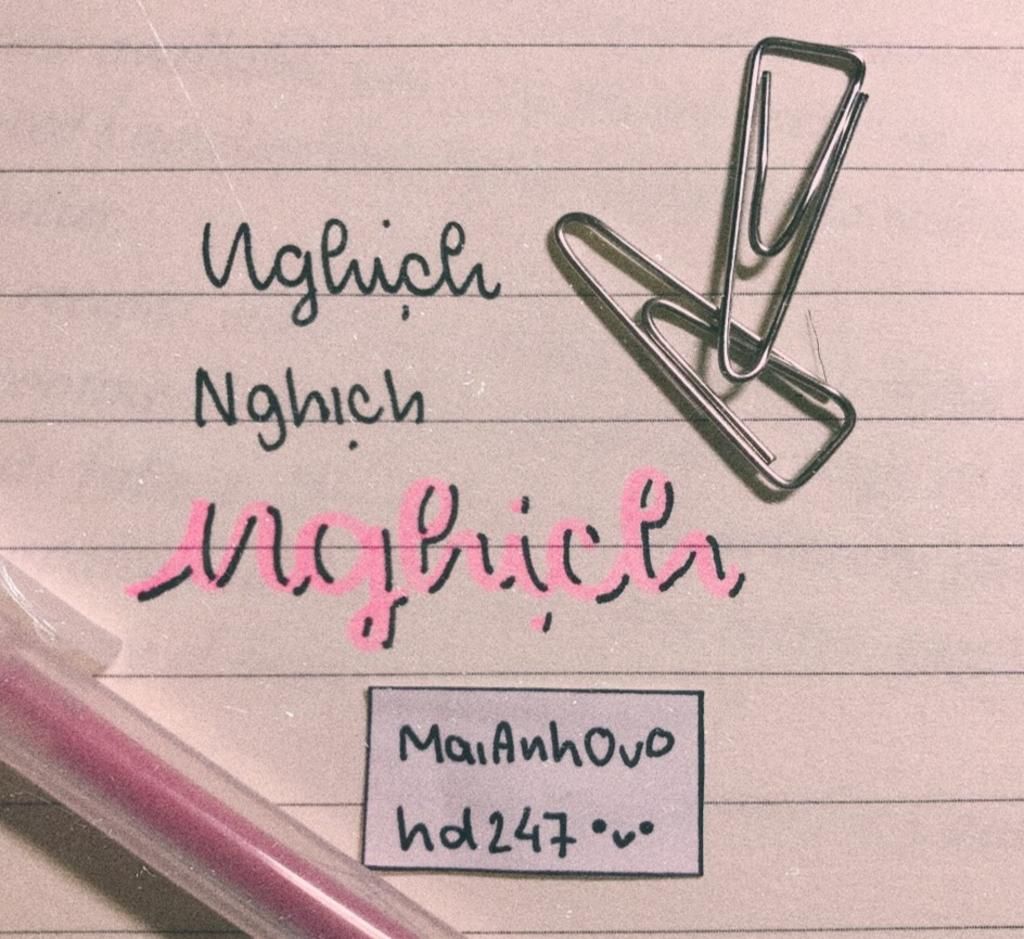 Nghịch
Nghịch
Nghịch
MaiAnhOvO
hd247 •v•